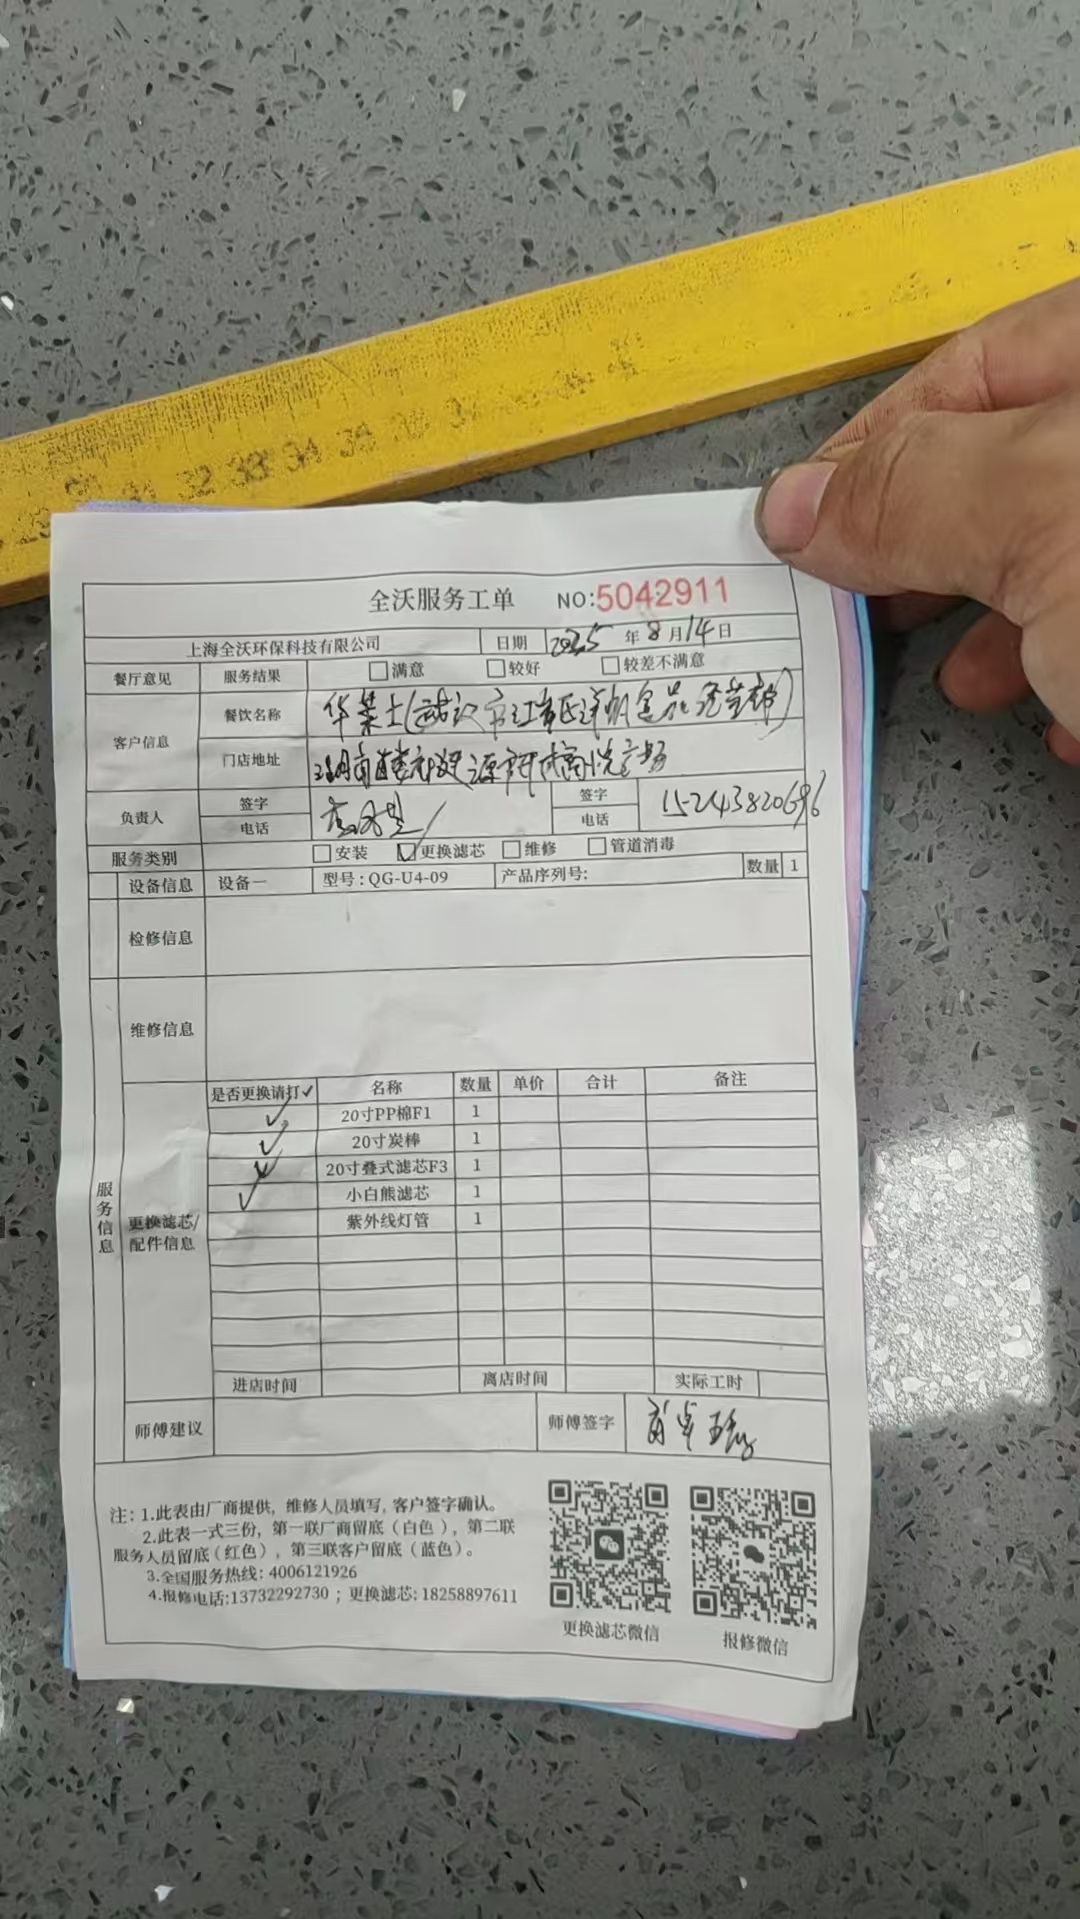 全沃服务工单 NO:5042911
上海全沃环保科技有限公司 日期 2025 年 8 月 14 日
餐厅意见 服务结果 满意 较好 较差不满意
客户信息 餐饮名称 华莱士(武汉市江
门店地址 湖南
负责人 签字 签字 15243820696
电话 电话
服务类别 安装 更换滤芯 维修 管道消毒
设备信息 设备一 型号:QG-U4-09 产品序列号: 数量 1
检修信息
维修信息
服务信息
更换滤芯/配件信息
是否更换请打✓ 名称 数量 单价 合计 备注
✓ 20寸PP棉F1 1
✓ 20寸炭棒 1
✓ 20寸叠式滤芯F3 1
✓ 小白熊滤芯 1
紫外线灯管 1
进店时间 离店时间 实际工时
师傅建议 师傅签字
注: 1.此表由厂商提供, 维修人员填写, 客户签字确认。
2.此表一式三份, 第一联厂商留底(白色), 第二联
服务人员留底(红色), 第三联客户留底(蓝色)。
3.全国服务热线: 4006121926
4.报修电话:13732292730 ; 更换滤芯: 18258897611
更换滤芯微信 报修微信
31 32 33 34 35